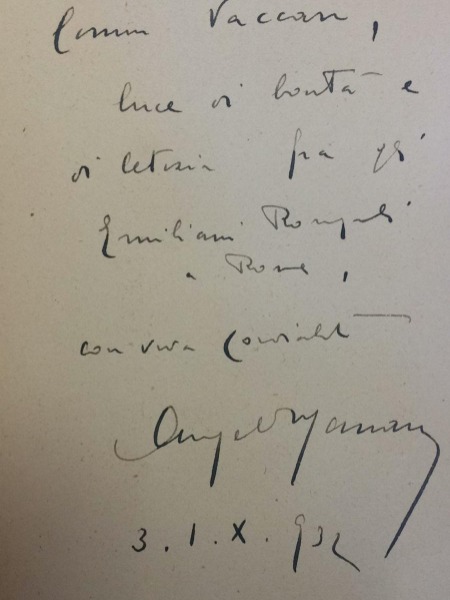 Comm Vaccari,
luce di bontà e
di letizia fra gli
Emiliani Romagnoli
a Roma,
con viva cordialità
3.1.X.932